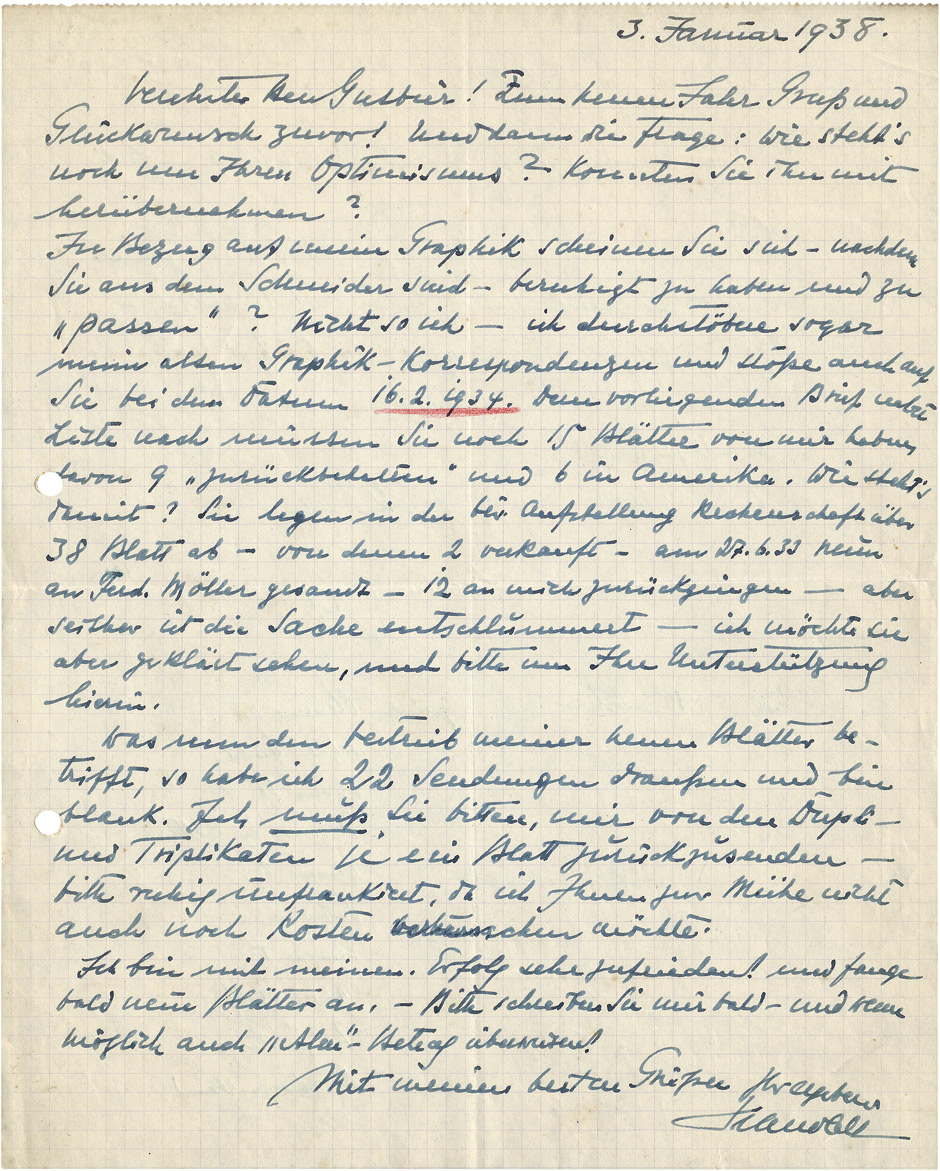 3. Januar 1938.
Verehrter Herr Gutbier! Zum neuen Jahr Gruß und
Glückwunsch zuvor! Und dann die Frage: wie steht's
noch um Ihren Optimismus? Konnten Sie ihn mit
herübernehmen?
In Bezug auf meine Graphik scheinen Sie sich – nachdem
Sie aus dem Schneider sind – beruhigt zu haben und zu
„passen"? Nicht so ich — ich durchstöbre sogar
meine alten Graphik-Korrespondenzen und stoße auch auf
Sie bei dem Datum 16.2.1934. Dem vorliegenden Brief nebst
Liste nach müssen Sie noch 15 Blätter von mir haben,
davon 9 „zurückbehalten" und 6 in Amerika. Wie steht's
damit? Sie legen in der Aufstellung Rechenschaft über
38 Blatt ab – von denen 2 verkauft – am 27.6.33 neun
an Ferd. Möller gesandt – 12 an mich zurückgingen — aber
seither ist die Sache entschlummert — ich möchte sie
aber geklärt sehen, und bitte um Ihre Unterstützung
hierin.
Was nun den Vertrieb meiner neuen Blätter be-
trifft, so habe ich 22 Sendungen draußen und bin
blank. Ich muß Sie bitten, mir von den Dupli-
und Triplikaten je ein Blatt zurückzusenden —
bitte ruhig unfrankiert, da ich Ihnen zur Mühe nicht
auch noch Kosten möchte.
Ich bin mit meinem Erfolg sehr zufrieden! und fange
bald neue Blätter an. – Bitte schreiben Sie mir bald – und wenn
möglich auch Betrag überweisen!
Mit meinen besten Grüßen Ihr ergebener